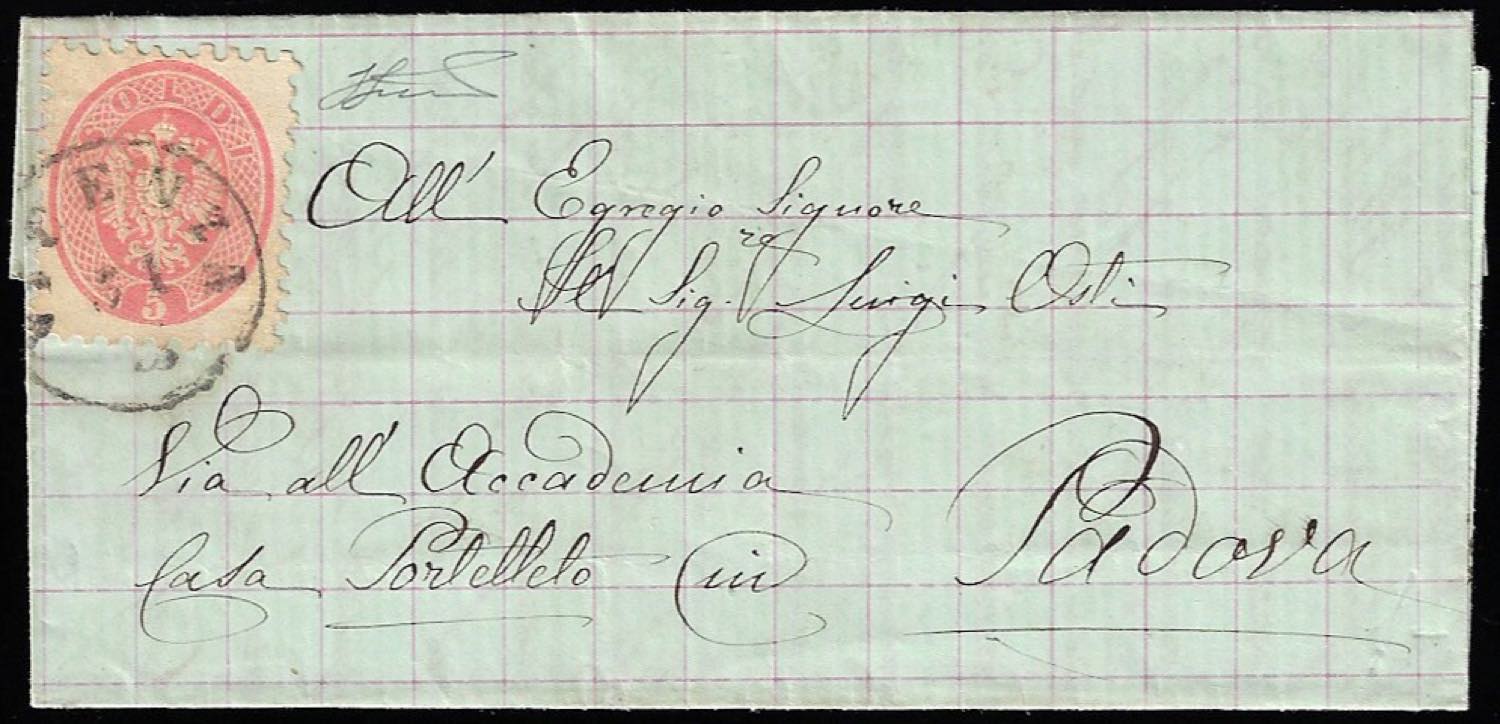 SOLDI
5
VICENZA
31
All' Egregio Signore
Il Sig.re Luigi Osti
Via all' Accademia
Casa Portelleto in Padova